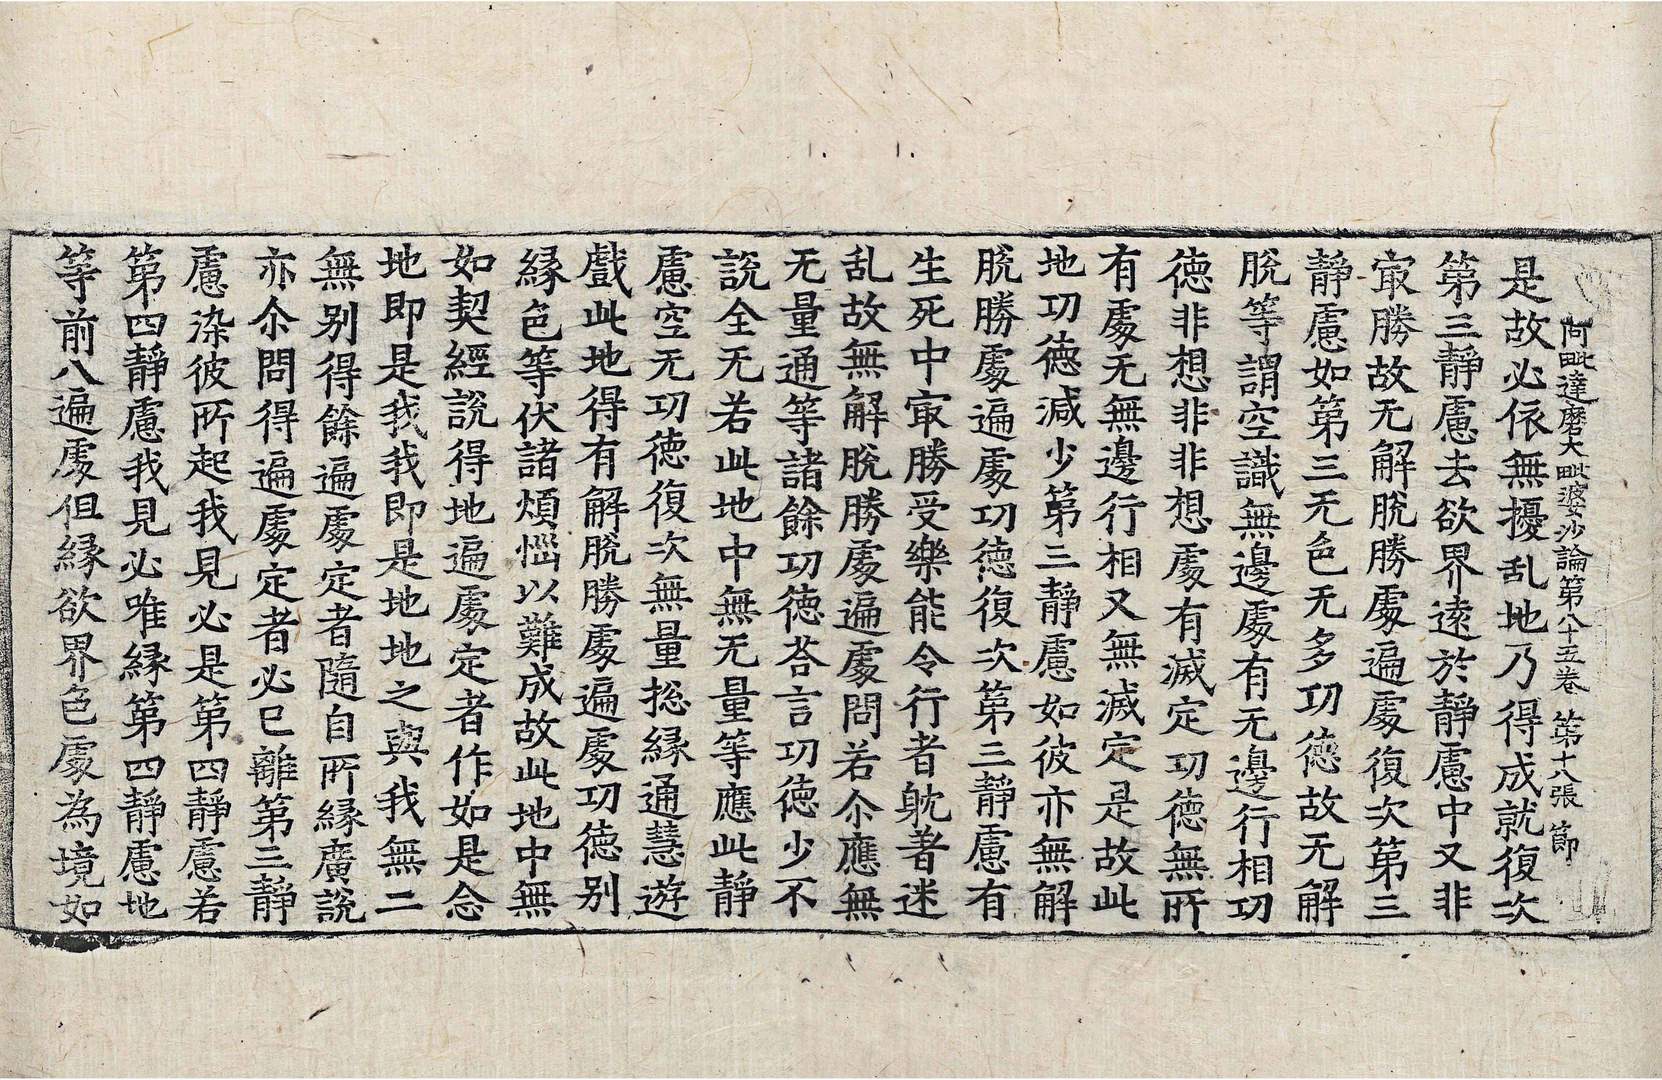 阿毗達磨大毗婆沙論第八十五卷 第十八張 節
是故必依無擾乱地乃得成就復次
第三靜慮去欲界遠於靜慮中又非
㝡勝故无解脫勝處遍處復次第三
靜慮如第三无色无多功德故无解
脫等謂空識無邊處有无邊行相功
德非想非非想處有滅定功德無所
有處无無邊行相又無滅定是故此
地功德減少第三靜慮如彼亦無解
脫勝處遍處功德復次第三靜慮有
生死中㝡勝受樂能令行者躭著迷
乱故無解脫勝處遍處問若尒應無
无量通等諸餘功德荅言功德少不
說全无若此地中無无量等應此靜
慮空无功德復次無量揔緣通慧遊
戲此地得有解脫勝處遍處功德別
緣色等伏諸煩惱以難成故此地中無
如契經說得地遍處定者作如是念
地即是我我即是地地之與我無二
無別得餘遍處定者隨自所緣廣說
亦尒問得遍處定者必已離第三靜
慮染彼所起我見必是第四靜慮若
第四靜慮我見必唯緣第四靜慮地
等前八遍處但緣欲界色處為境如